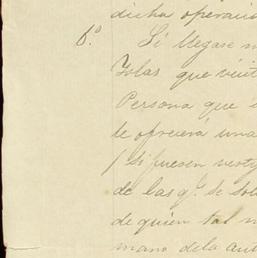 dicha operació
6.º Si llegase
Yslas que veint
Persona que
le ofrecerá una
si fuesen veoty
de las q.e se sol
de quien tal
mano dela aut